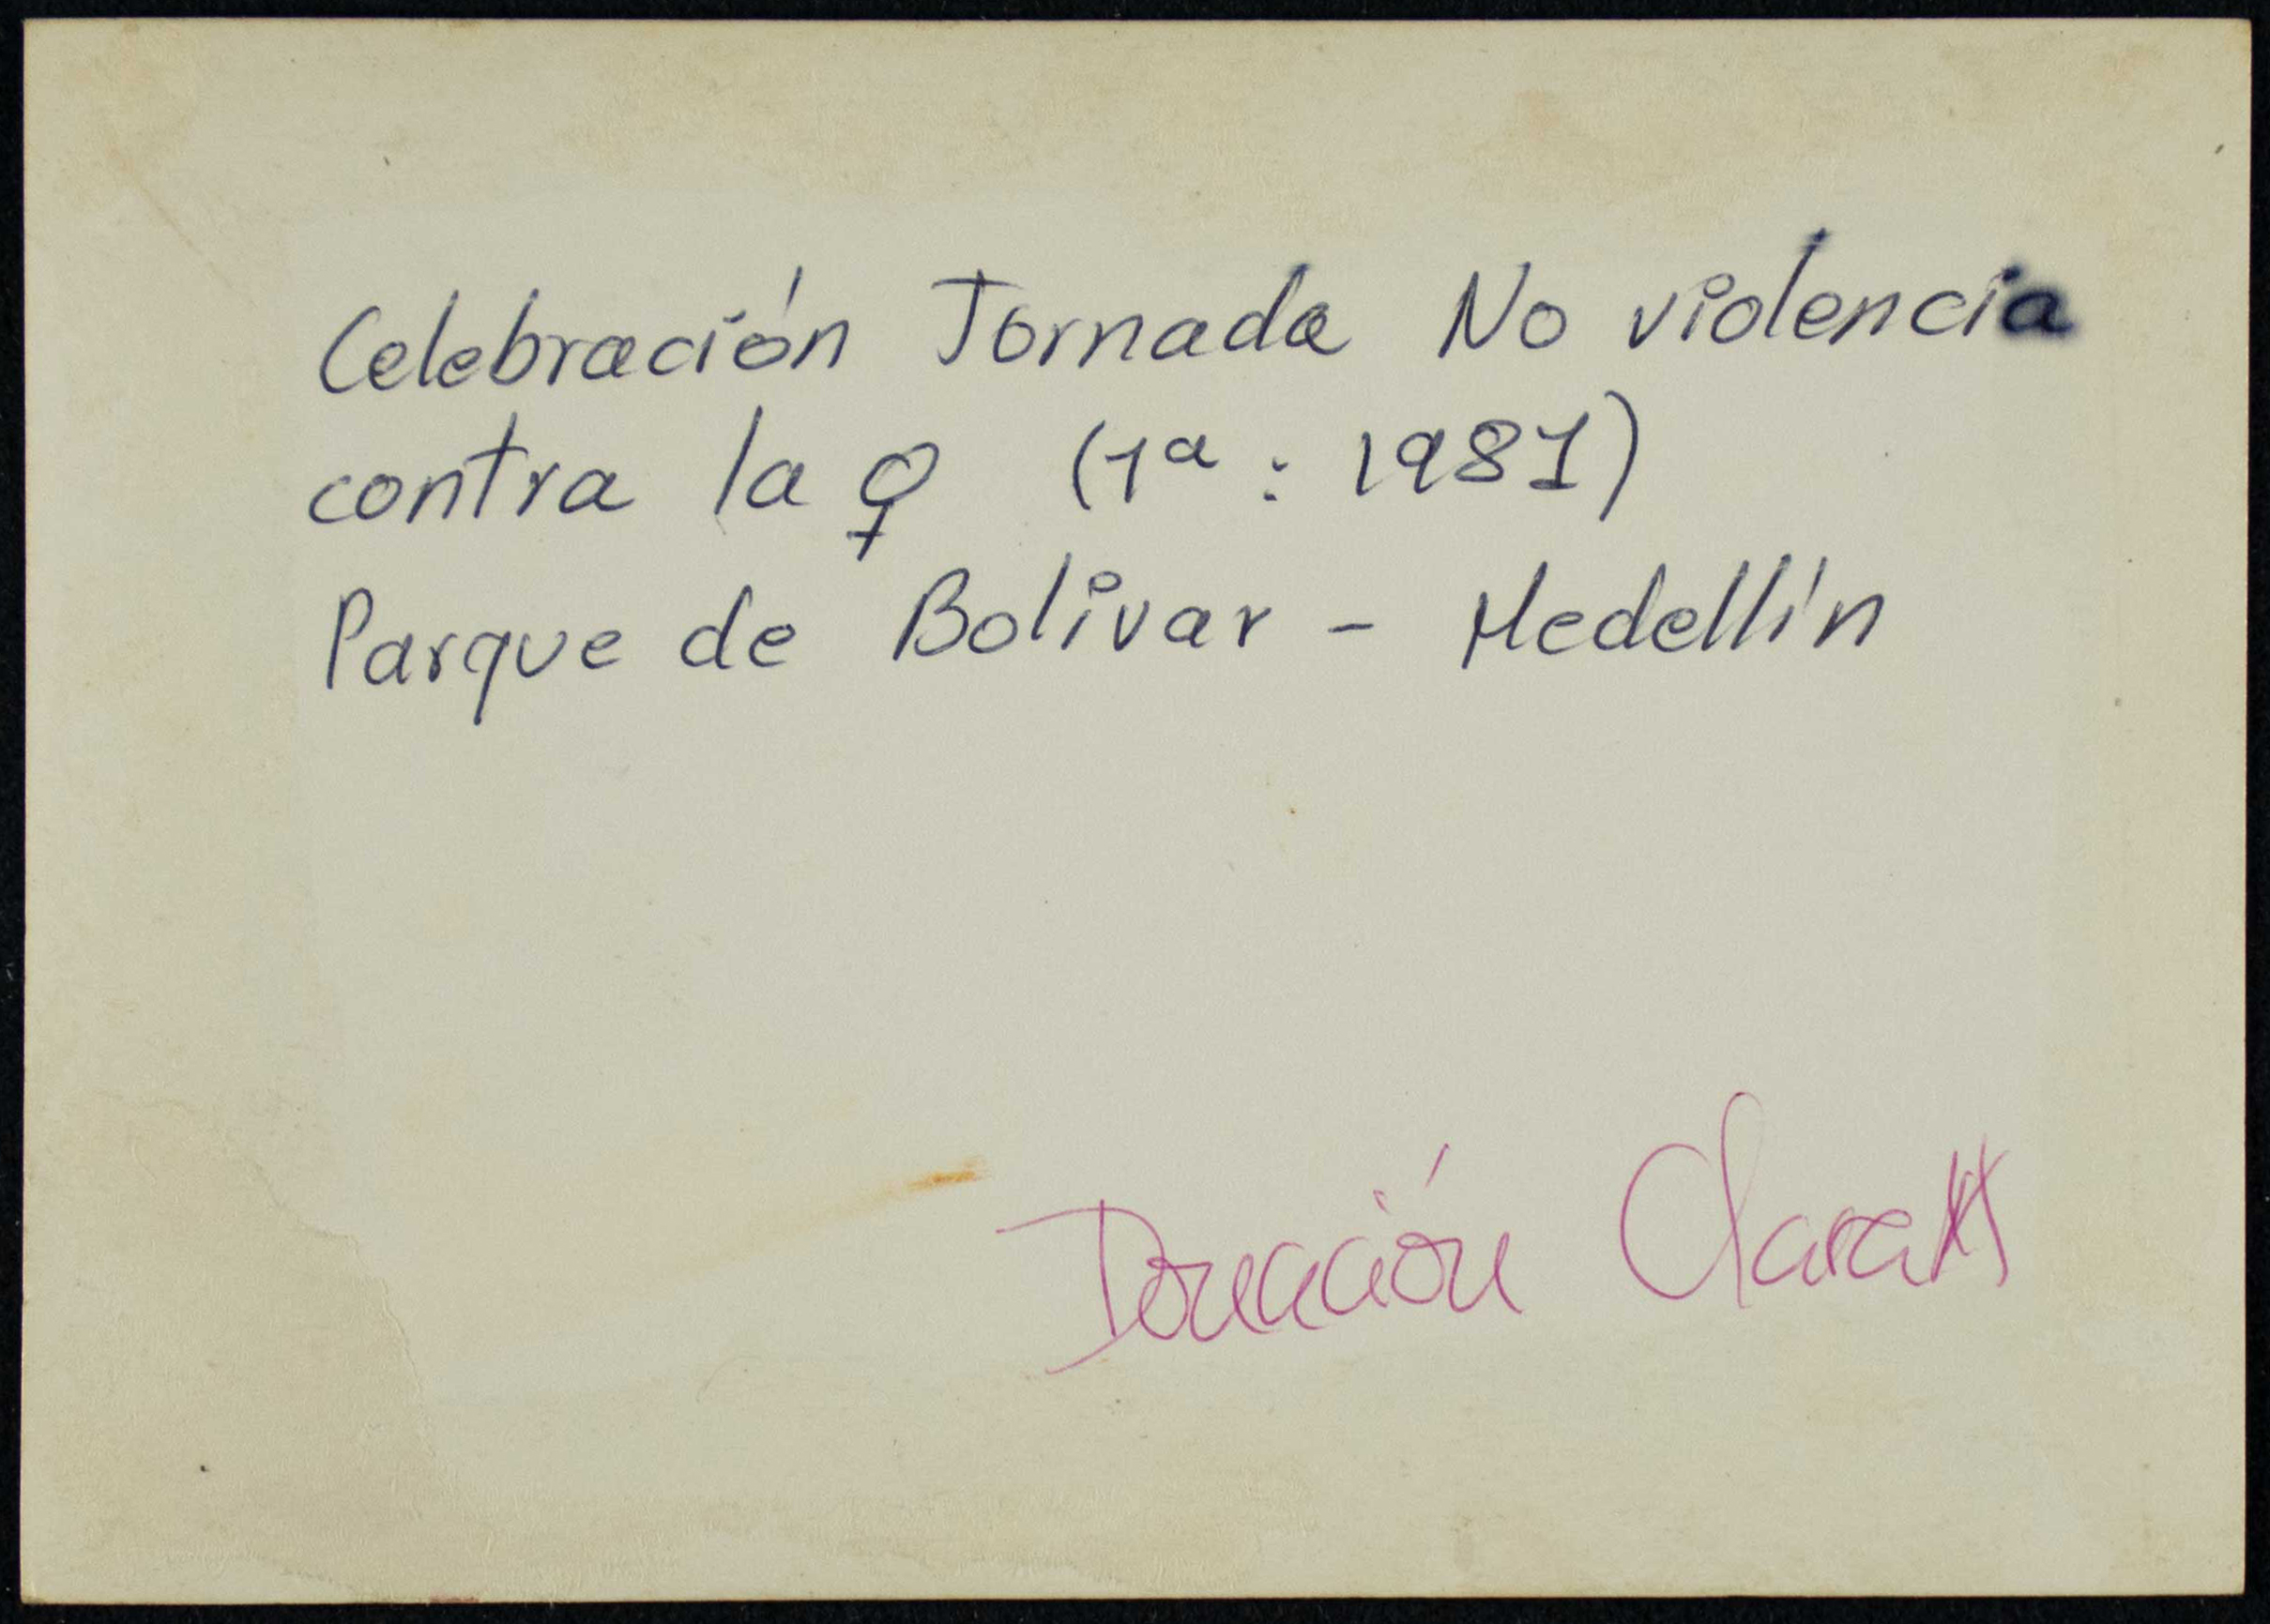 Celebración Jornada No violencia
contra la ♀ (1ª : 1981)
Parque de Bolívar - Medellín
Donación Clara